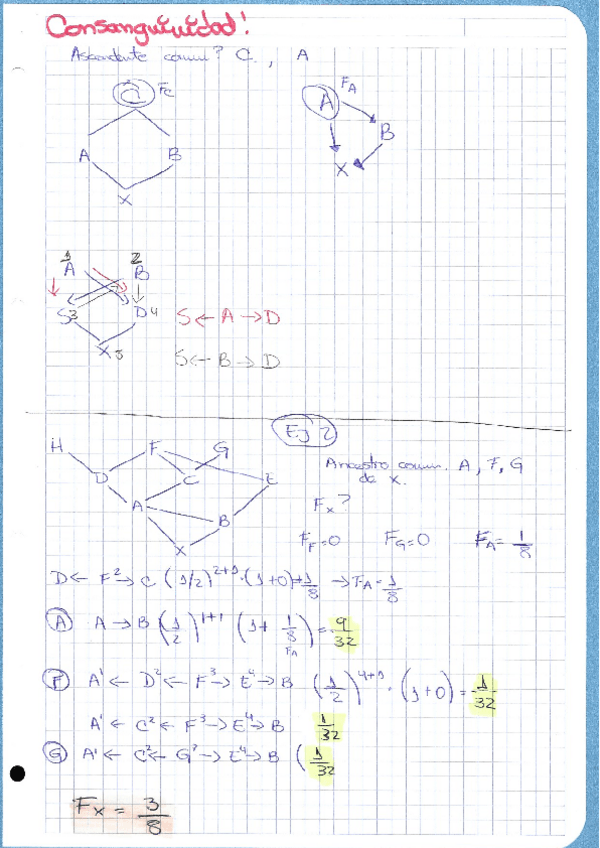 Consanguinidad!
Ascendente común? C , A
C Fc
A FA
B
A B
X
X
1 2
A B
S3 D4
S ← A → D
X5
S ← B → D
Ej 2
H F G
D C E
A
B
X
Ancestro común. A, F, G
de X.
Fx?
FF=0 FG=0 FA= 1/8
D ← F² → C (1/2)²⁺¹ · (1+0) = 1/8 → FA = 1/8
A A → B (1/2)¹⁺¹ (1 + 1/8) = 9/32
FA
F A¹ ← D² ← F³ → E⁴ → B (1/2)⁴⁺¹ · (1+0) = 1/32
A¹ ← C² ← F³ → E⁴ → B 1/32
G A¹ ← C² ← G³ → E⁴ → B ( 1/32
Fx = 3/8